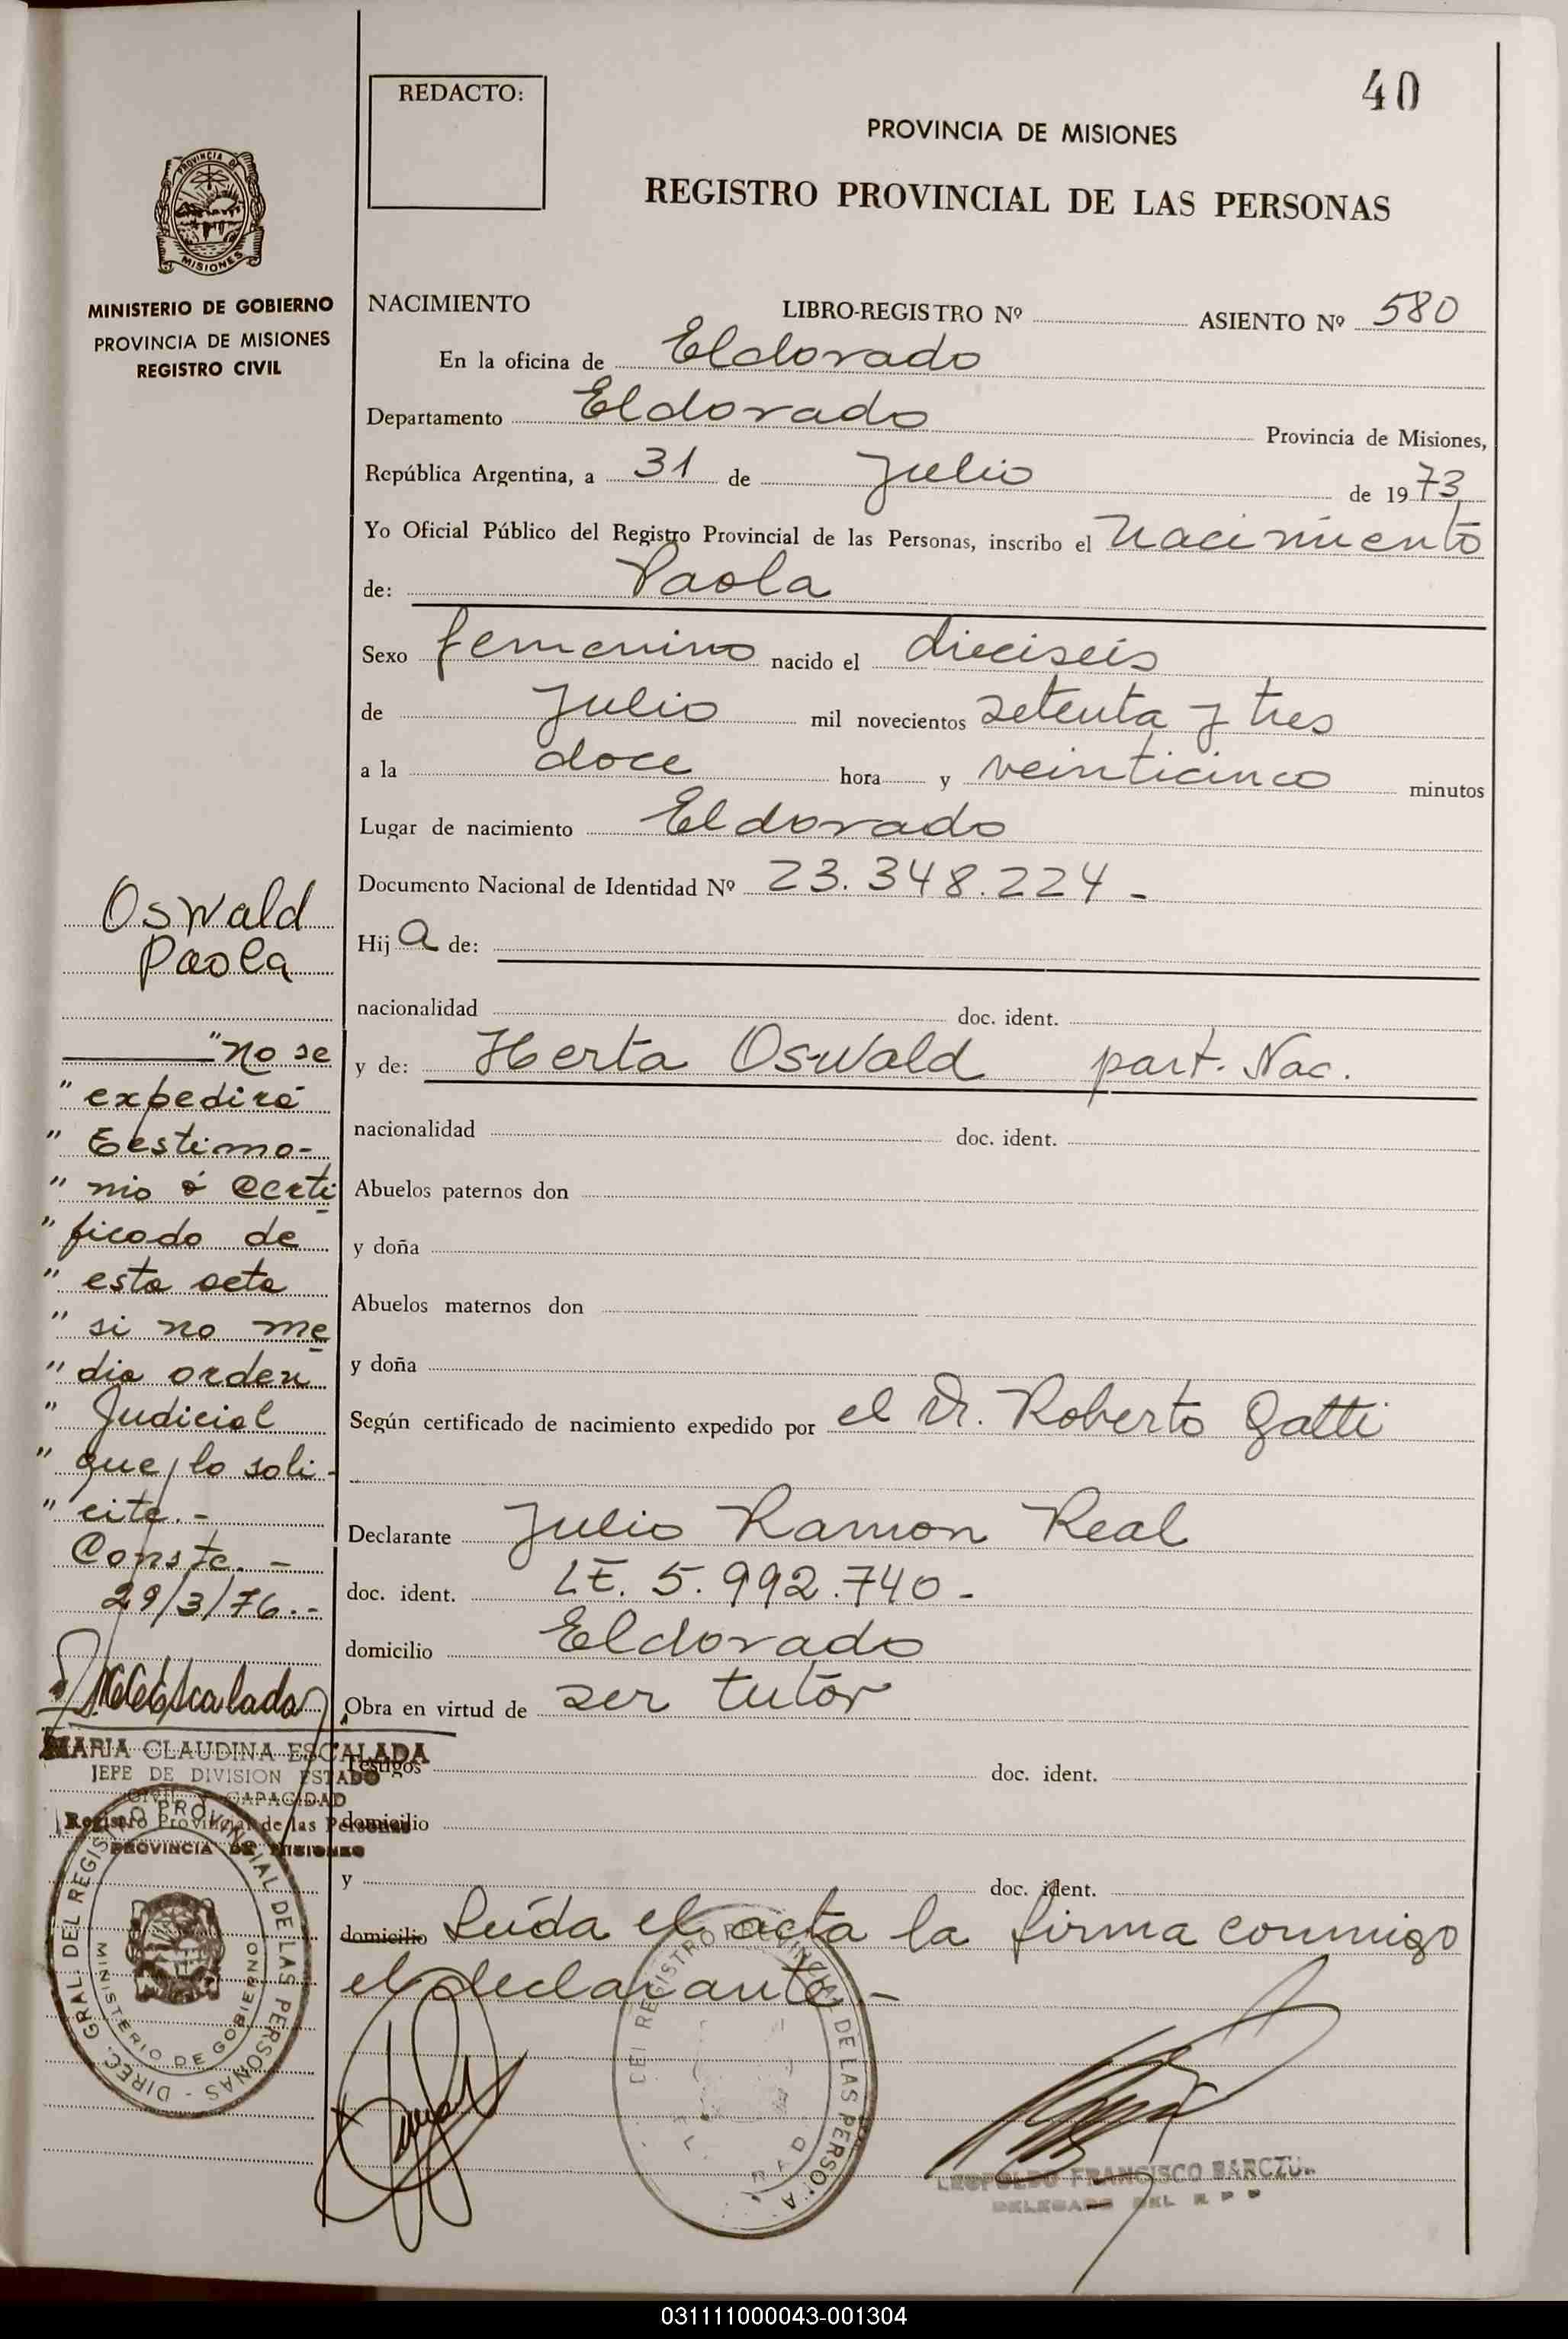 40
REDACTO:
PROVINCIA DE MISIONES
REGISTRO PROVINCIAL DE LAS PERSONAS
PROVINCIA DE
MISIONES
MINISTERIO DE GOBIERNO
PROVINCIA DE MISIONES
REGISTRO CIVIL
NACIMIENTO LIBRO-REGISTRO Nº ASIENTO Nº 580
En la oficina de Eldorado
Departamento Eldorado Provincia de Misiones,
República Argentina, a 31 de Julio de 1973
Yo Oficial Público del Registro Provincial de las Personas, inscribo el nacimiento
de: Paola
Sexo femenino nacido el dieciseis
de Julio mil novecientos setenta y tres
a la doce hora y veinticinco minutos
Lugar de nacimiento Eldorado
Documento Nacional de Identidad Nº 23.348.224-
Hij a de:
nacionalidad doc. ident.
y de: Herta Oswald part. Nac.
nacionalidad doc. ident.
Abuelos paternos don
y doña
Abuelos maternos don
y doña
Según certificado de nacimiento expedido por el Dr. Roberto Gatti
Declarante Julio Ramon Real
doc. ident. LE. 5.992.740-
domicilio Eldorado
Obra en virtud de ser tutor
Testigos doc. ident.
domicilio
y doc. ident.
domicilio Leída el acta la firma conmigo
el declarante.-
Oswald
Paola
"no se
" expedirá
" testimo-
" nio ó certi
" ficado de
" esta acta
" si no me
" dia orden
" Judicial
" que lo soli-
" cite.-
Conste.-
29/3/76.-
MARIA CLAUDINA ESCALADA
JEFE DE DIVISION ESTADO
CIVIL Y CAPACIDAD
Registro Provincial de las Personas
PROVINCIA DE MISIONES
DIREC. GRAL. DEL REGISTRO PROVINCIAL DE LAS PERSONAS -
MINISTERIO DE GOBIERNO
DEL REGISTRO DE LAS PERSONA
LEOPOLDO FRANCISCO
DELEGADO DEL R P P
031111000043-001304